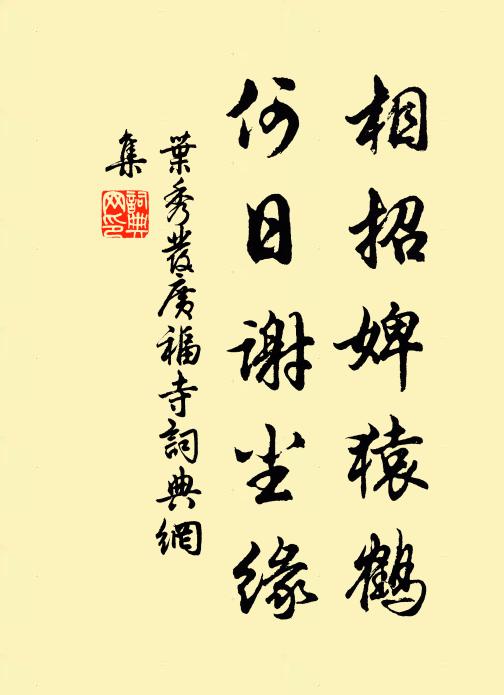 相招婢猿鶴
何日谢尘缘
葉秀發廣福寺詞典網
集
詞典
网印